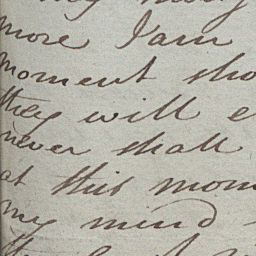 more I am
moment sho
they will e
never shall
at this mom
my mind